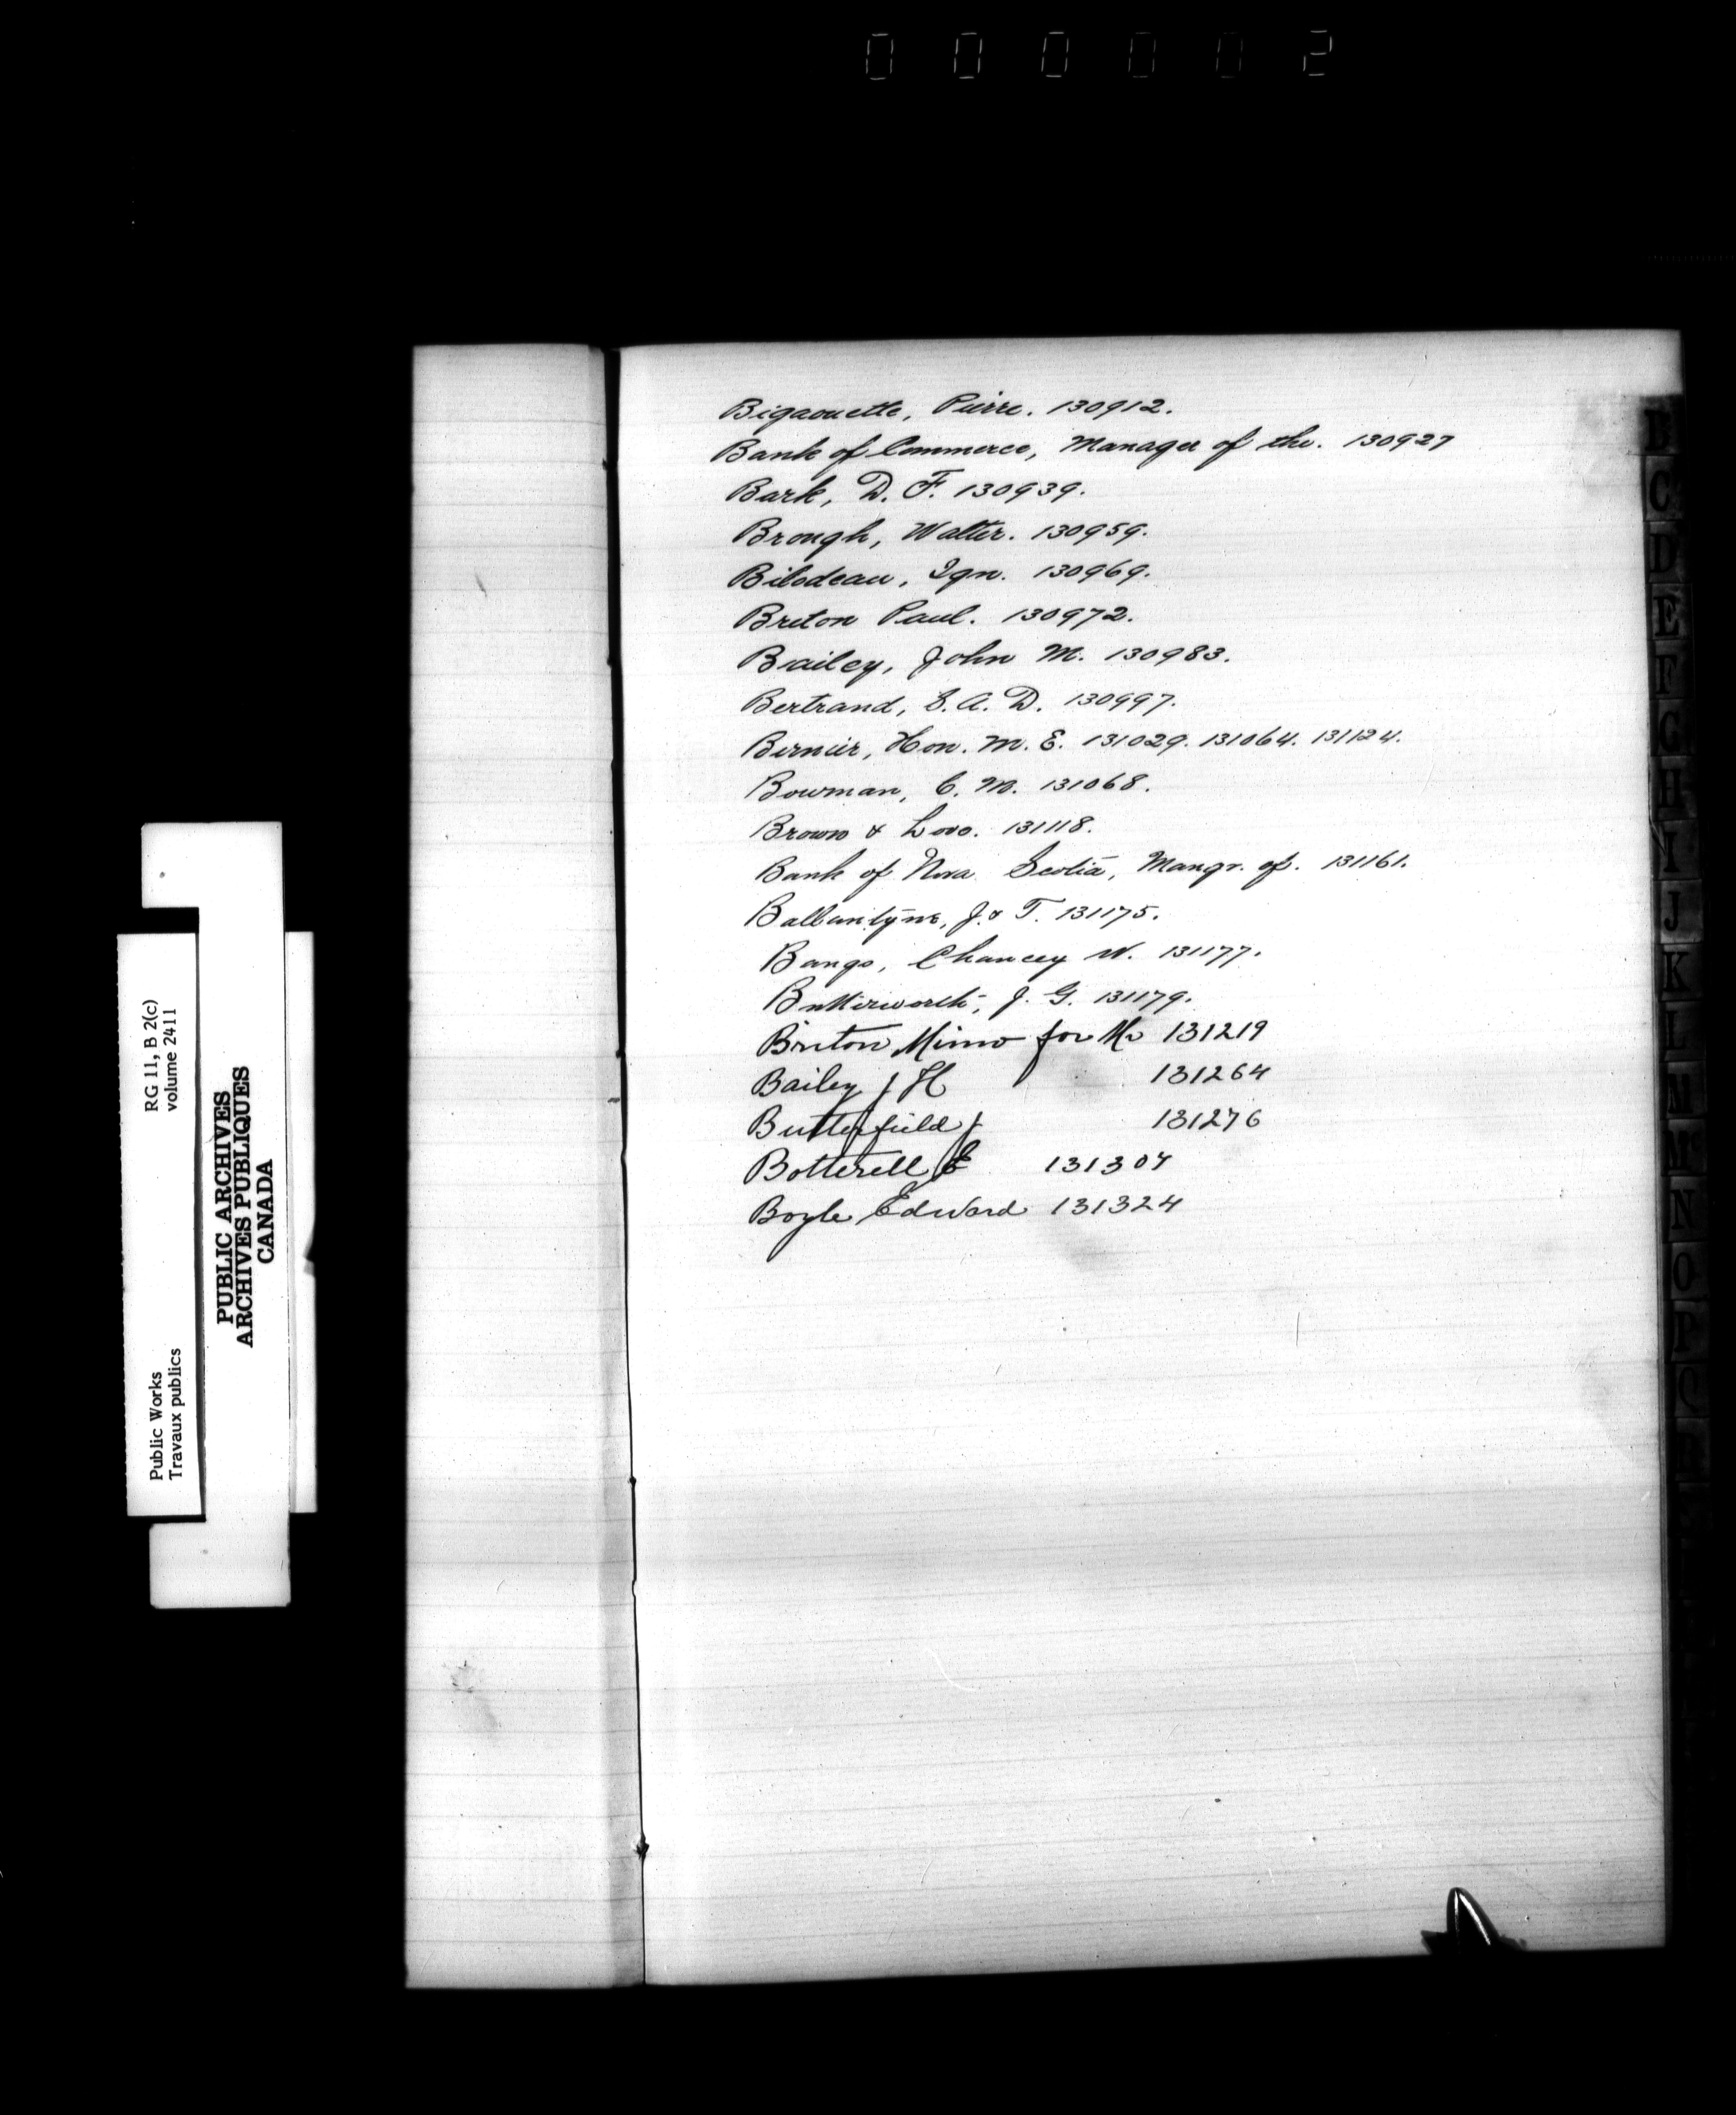 000002
Bigaouette, Pierre. 130912.
Bank of Commerce, Manager of the. 130927
Bark, D. F. 130939.
Brough, Walter. 130959.
Bilodeau, Ign. 130969.
Breton Paul. 130972.
Bailey, John M. 130983.
Bertrand, S. A. D. 130997.
Bernier, Hon. M. E. 131029. 131064. 131124.
Bowman, C. M. 131068.
Brown & Love. 131118.
Bank of Nova Scotia, Mangr. of. 131161.
Ballantyne, J. & T. 131175.
Bangs, Chancey W. 131177.
Butterworth, J. G. 131179.
Briton Memo for Mr 131219
Bailey J H 131264
Butterfield J 131276
Botterell E 131307
Boyle Edward 131324
B
C
D
E
F
G
H
I
J
K
L
M
Mc
N
O
P
RG 11, B 2(c)
volume 2411
Public Works
Travaux publics
PUBLIC ARCHIVES
ARCHIVES PUBLIQUES
CANADA